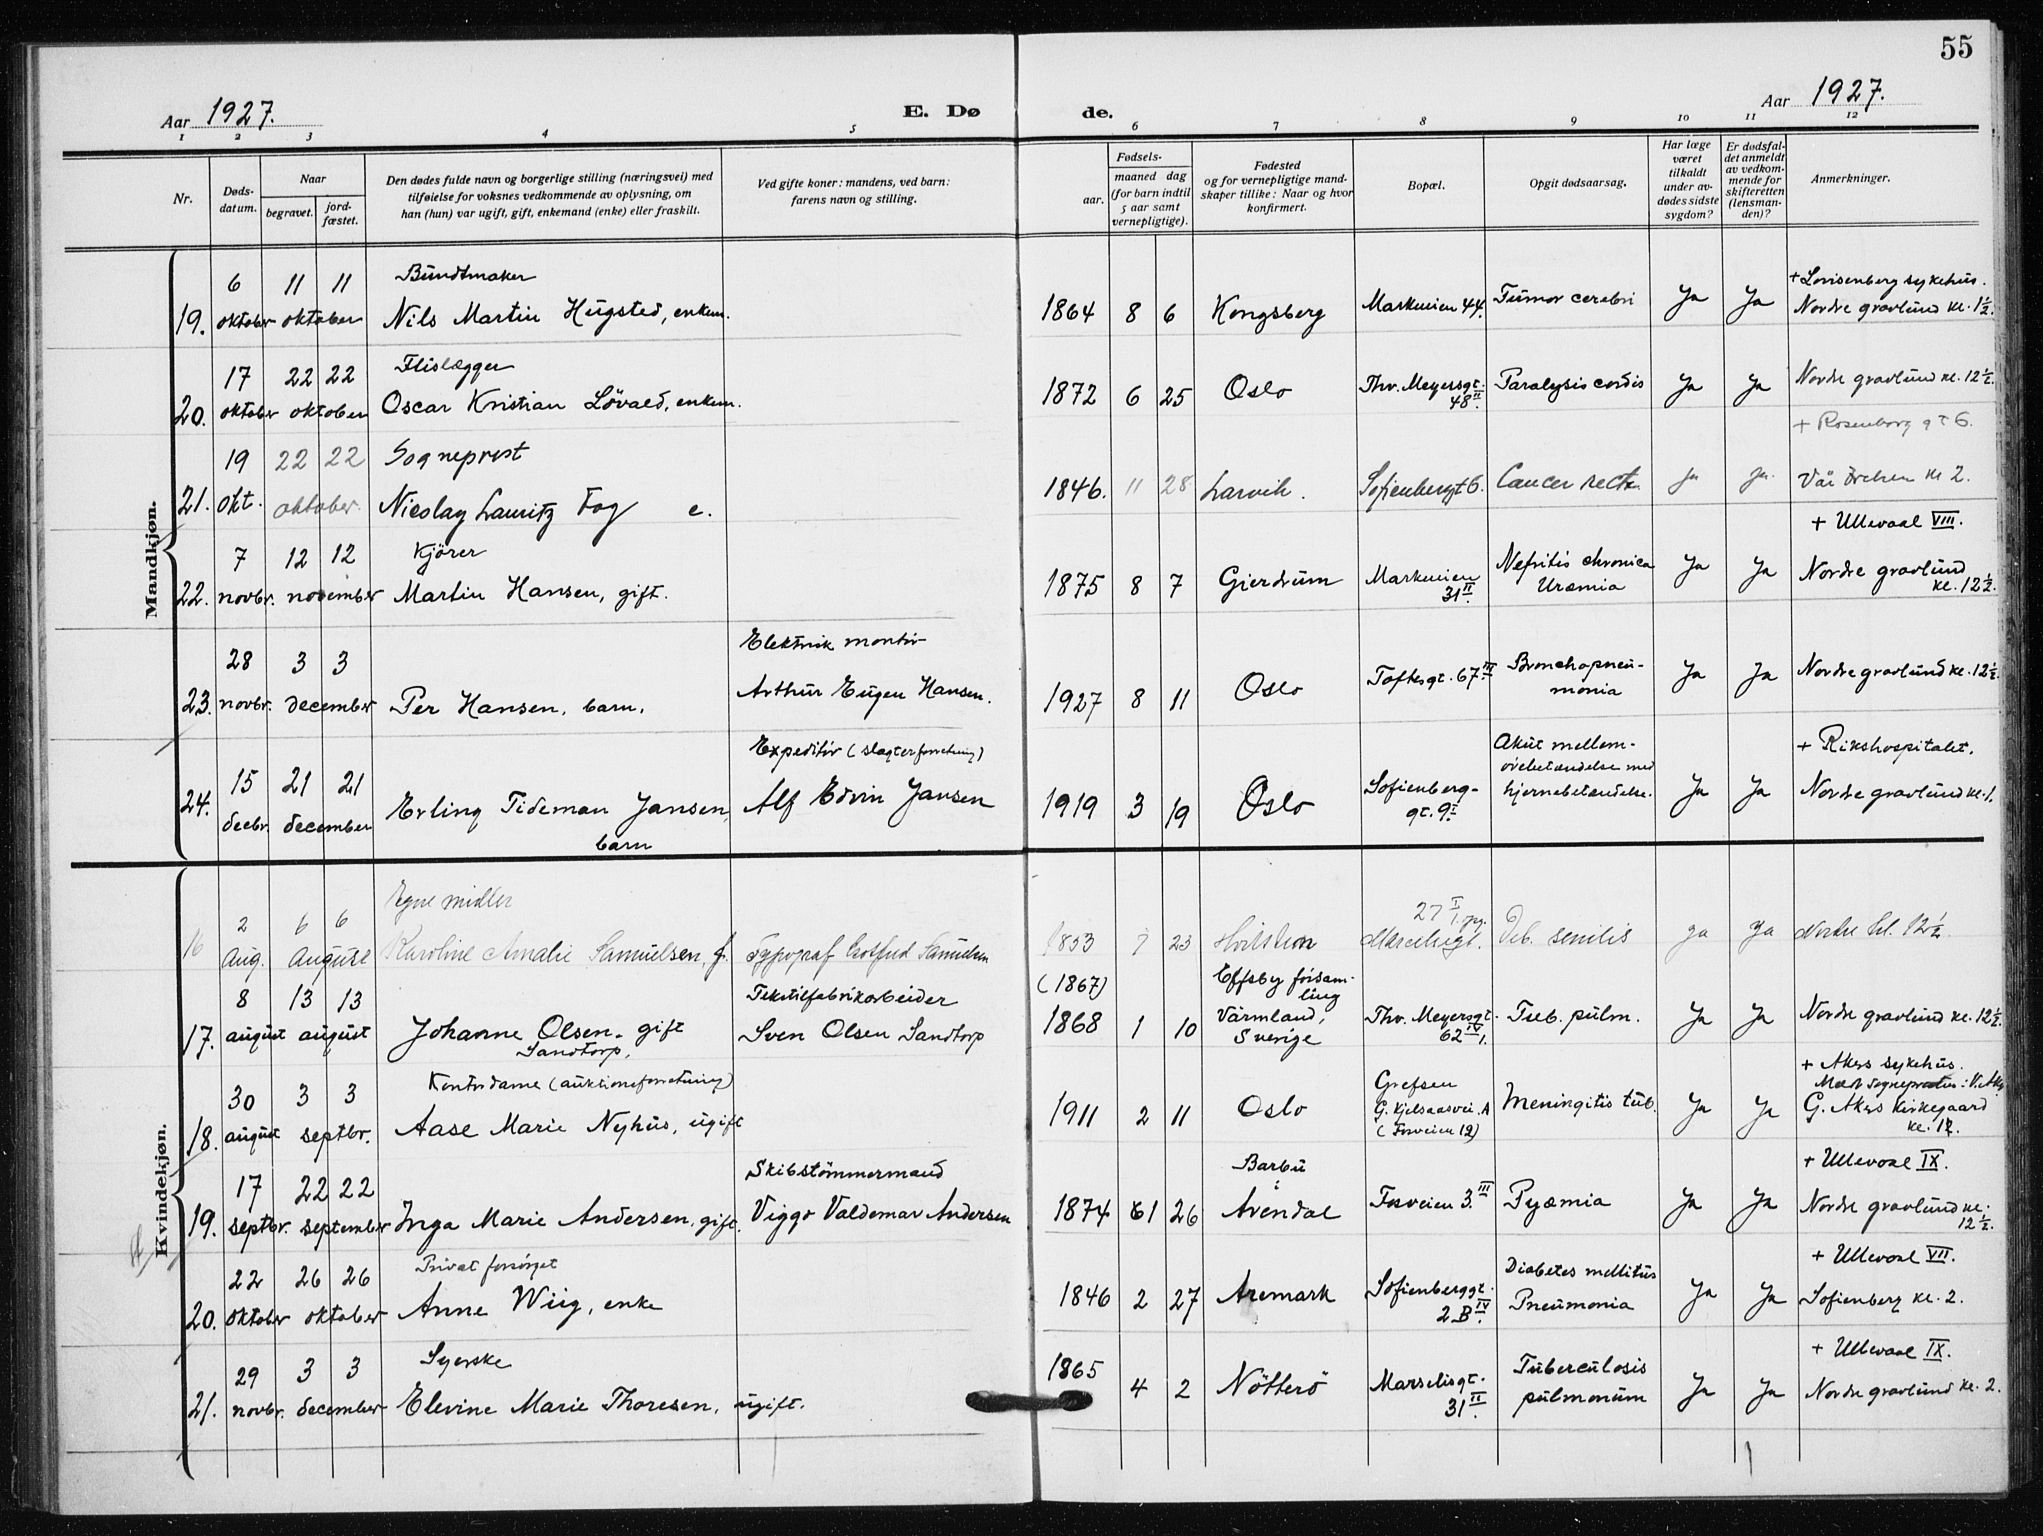 55
Aar 1927.
E. Døde.
Aar 1927.
1 2 3 4 5 6 7 8 9 10 11 12
Nr.
Døds-
datum.
Naar
begravet.
jord-
fæstet.
Den dødes fulde navn og borgerlige stilling (næringsvei) med
tilføielse for voksnes vedkommende av oplysning, om
han (hun) var ugift, gift, enkemand (enke) eller fraskilt.
Ved gifte koner: mandens, ved barn:
farens navn og stilling.
Fødsels-
aar.
maaned dag
(for barn indtil
5 aar samt
vernepligtige).
Fødested
og for vernepligtige mand-
skaper tillike: Naar og hvor
konfirmert.
Bopæl.
Opgit dødsaarsag.
Har læge
været
tilkaldt
under av-
dødes sidste
sygdom?
Er dødsfal-
det anmeldt
av vedkom-
mende for
skifteretten
(lensman-
den)?
Anmerkninger.
Mandkjøn.
6 11 11 Bundtmaker + Lovisenberg sykehus.
19. oktober oktober Nils Martin Hugsted, enkem. 1864 8 6 Kongsberg Markveien 44. Tumor cerebri Ja Ja Nordre gravlund kl. 1½.
17 22 22 Flislægger
20. oktober oktober Oscar Kristian Lövald, enkem. 1872 6 25 Oslo Thv. Meyersgt. 48 II. Paralysis cordis Ja Ja Nordre gravlund kl. 12½.
19 22 22 Sogneprest + Rosenborg gt 6.
21. okt. oktober Nicolay Lauritz Fog e. 1846. 11 28 Larvik. Sofienberggt 6. Cancer recti ja ja Vår Frelser kl 2.
7 12 12 Kjörer + Ullevaal VIII.
22. novbr. november Martin Hansen, gift. 1875 8 7 Gjerdrum Markveien 31 II. Nefritis chronica Uræmia Ja Ja Nordre gravlund kl. 12½.
28 3 3 Elektrik montör
23. novbr. december Per Hansen, barn. Arthur Eugen Hansen. 1927 8 11 Oslo Toftesgt. 67 III Bronchopneu-
monia Ja Ja Nordre gravlund kl. 12½.
15 21 21 Expeditör (slagterforretning) Akut mellem-
örebetændelse med + Rikshospitalet.
24. decbr. december Erling Tideman Jansen, barn Alf Edvin Jansen 1919 3 19 Oslo Sofienberg-
gt. 9 I hjernebetændelse. Ja Ja Nordre gravlund kl. 1.
Kvindekjøn.
2 6 6 Egne midler 27 I
16 Aug. August Karoline Amalie Samuelsen, g. Typograf Samuelsen 1853 7 23 Hvitsten Marseliusgt. Deb. senilis ja ja Nordre kl. 12½
8 13 13 Tekstilfabrikarbeider (1867) Effsby försam-
ling
17. august august Johanne Olsen Sandtorp, gift Sven Olsen Sandtorp 1868 1 10 Värmland, Sverige Thv. Meyersgt. 62 IV Tub. pulm. Ja Ja Nordre gravlund kl. 12½.
30 3 3 Kontordame (auktionsforretning) Grefsen + Akers sykehus.
18. august septbr. Aase Marie Nyhus, ugift 1911 2 11 Oslo G. Kjelsaasvei. A (Fosveien 12) Meningitis tub. Ja Ja G. Akers Kirkegaard kl. 12.
17 22 22 Skibstömmermand Barbu + Ullevaal IX.
19. septbr. september Inga Marie Andersen, gift. Viggo Valdemar Andersen 1874 1 26 Arendal Fosveien 3. III Pyæmia Ja Ja Nordre gravlund kl. 12½.
22 26 26 Privat forsörget + Ullevaal VII.
20. oktober oktober Anne Wiig, enke 1846 2 27 Aremark Sofienberggt. 2 B IV. Diabetes mellitus Pneumonia Ja Ja Sofienberg kl. 2.
29 3 3 Syerske + Ullevaal IX.
21. novbr. december Elevine Marie Thoresen, ugift. 1865 4 2 Nötterö Marselisgt. 31 II. Tuberculosis pulmonum Ja Ja Nordre gravlund kl. 2.